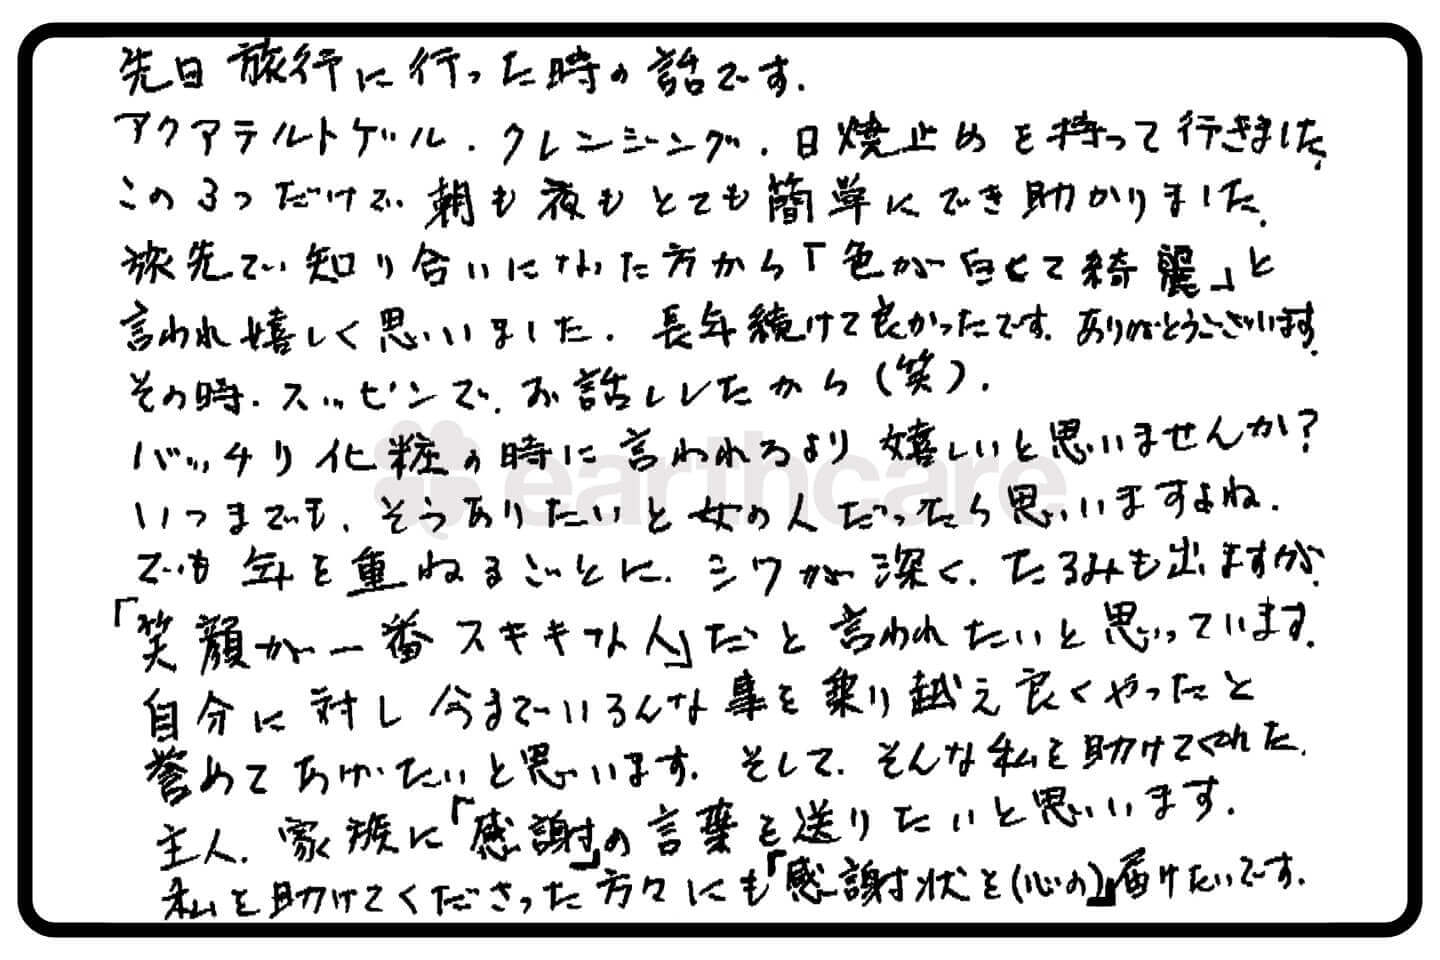 先日 旅行に行った時の話です.
アクアテルトゲル、クレンジング、日焼止めを持って行きました.
この3つだけで、朝も夜もとても簡単にでき助かりました.
旅先で知り合いになった方から「色が白くて綺麗」と
言われ嬉しく思いいました. 長年続けて良かったです. ありがとうございます.
その時、スッピンで、お話ししたから(笑).
バッチリ化粧の時に言われるより嬉しいと思いませんか?
いつまでも、そうありたいと女の人だったら思いいますよね.
でも年を重ねるごとに、シワが深く、たるみも出ますが、
「笑顔が一番ステキな人」だと言われたいと思っています.
自分に対し今までいろんな事を乗り越え良くやったと
誉めてあげたいと思います. そして、そんな私を助けてくれた.
主人、家族に「感謝」の言葉を送りたいと思いいます.
私を助けてくださった方々にも「感謝状を(心の)」届けたいです.
earthcare